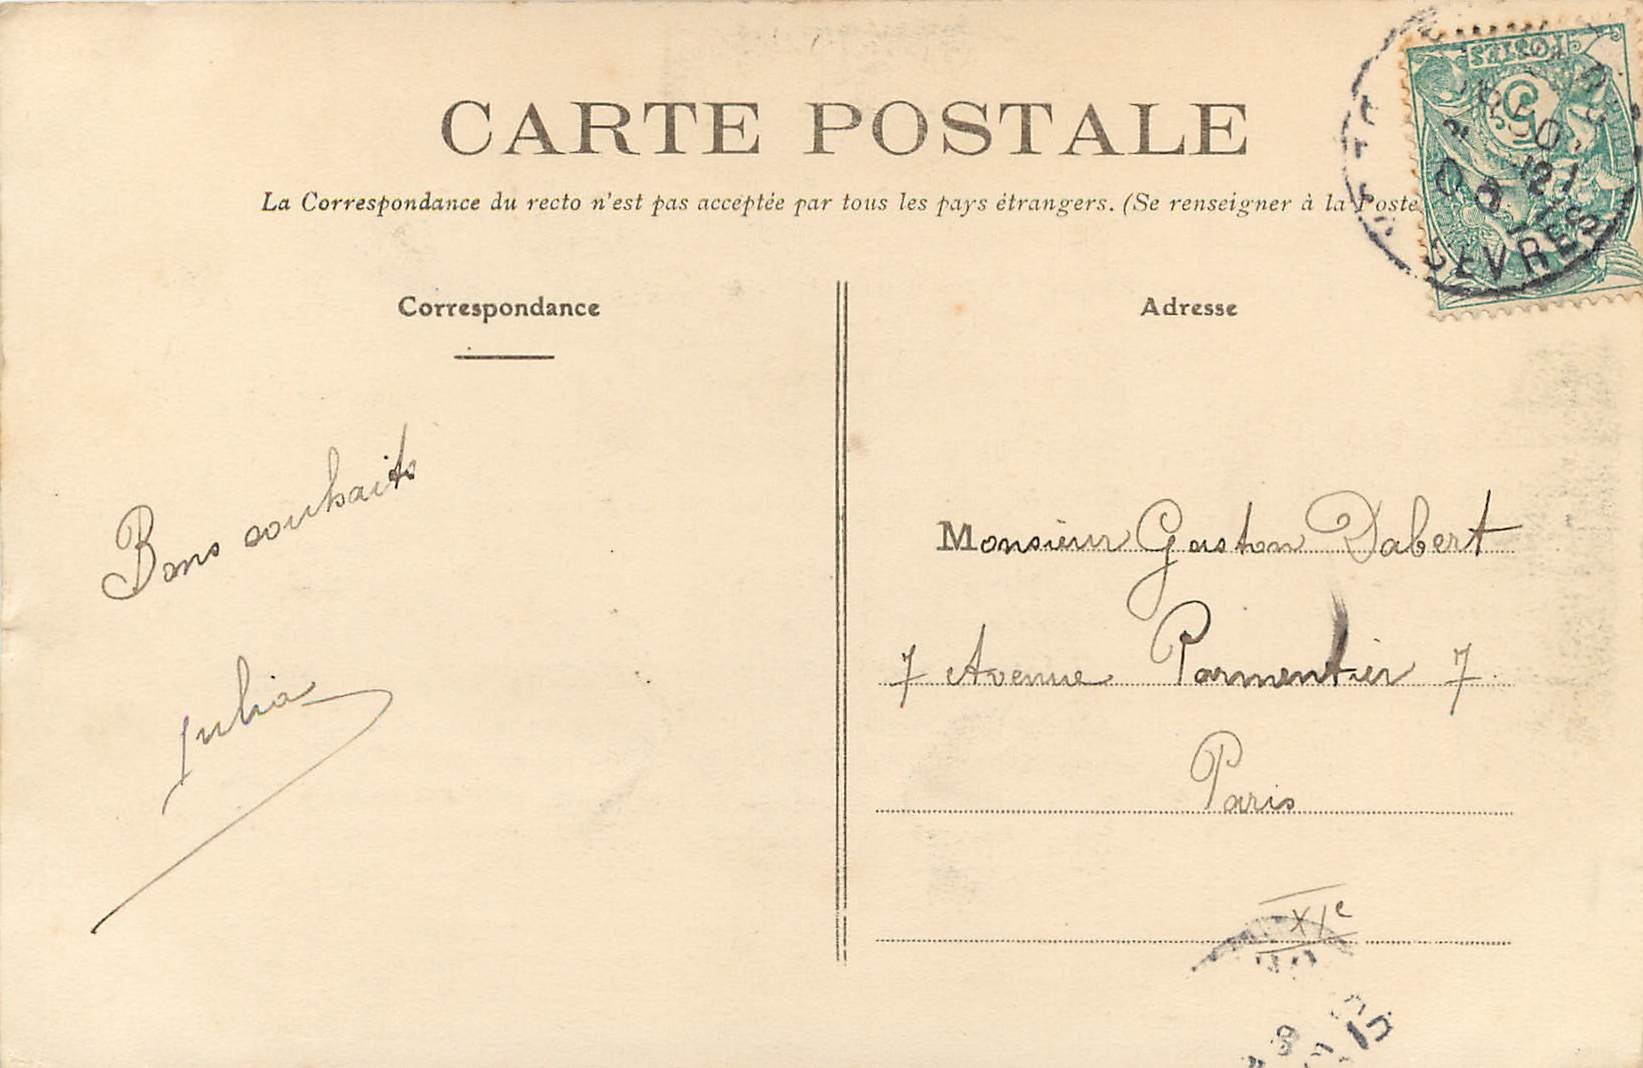 CARTE POSTALE
La Correspondance du recto n'est pas acceptée par tous les pays étrangers. (Se renseigner à la Poste
POSTES
5
SEVRES
Correspondance
Adresse
Bons souhaits
Julia
Monsieur Gaston Dabert
7 Avenue Parmentier 7
Paris
XIe